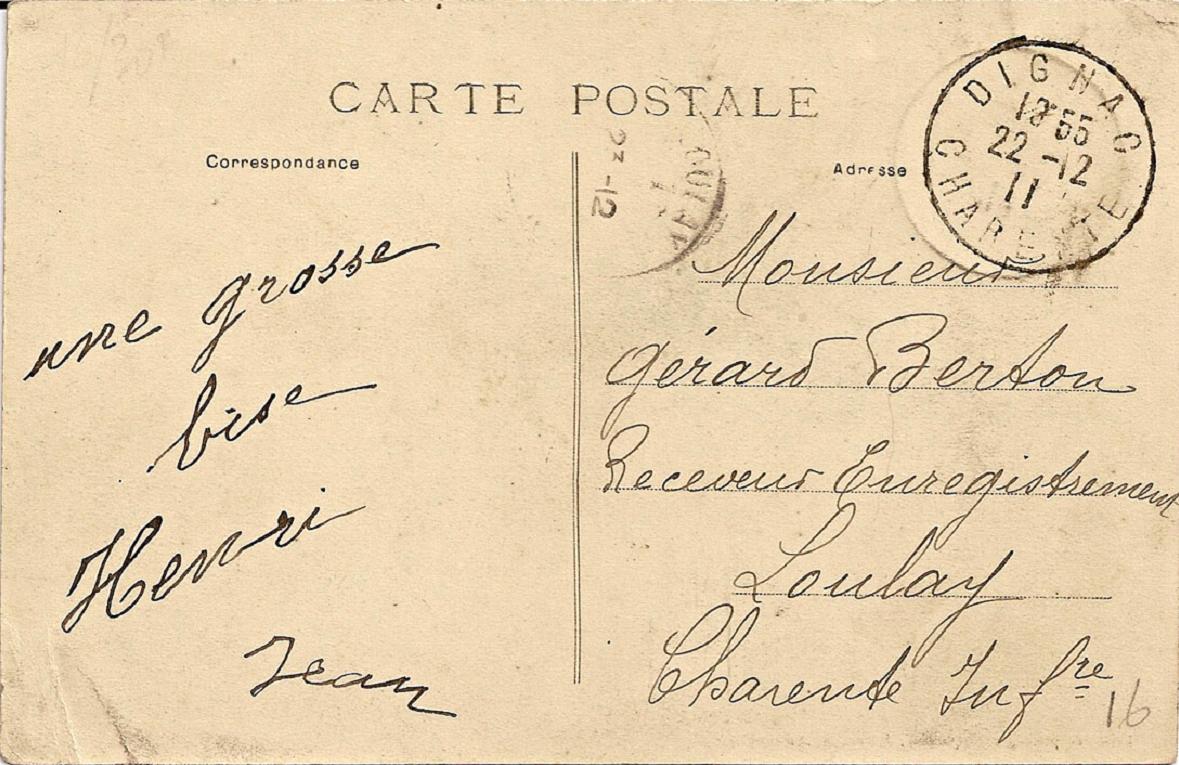 CARTE POSTALE
Correspondance
une grosse
bise
Henri
Jean
Adresse
DIGNAC
18 55
22 -12
11
CHARENTE
-12
Monsieur
Gérard Berton
Receveur Enregistrement
Loulay
Charente Infre
16